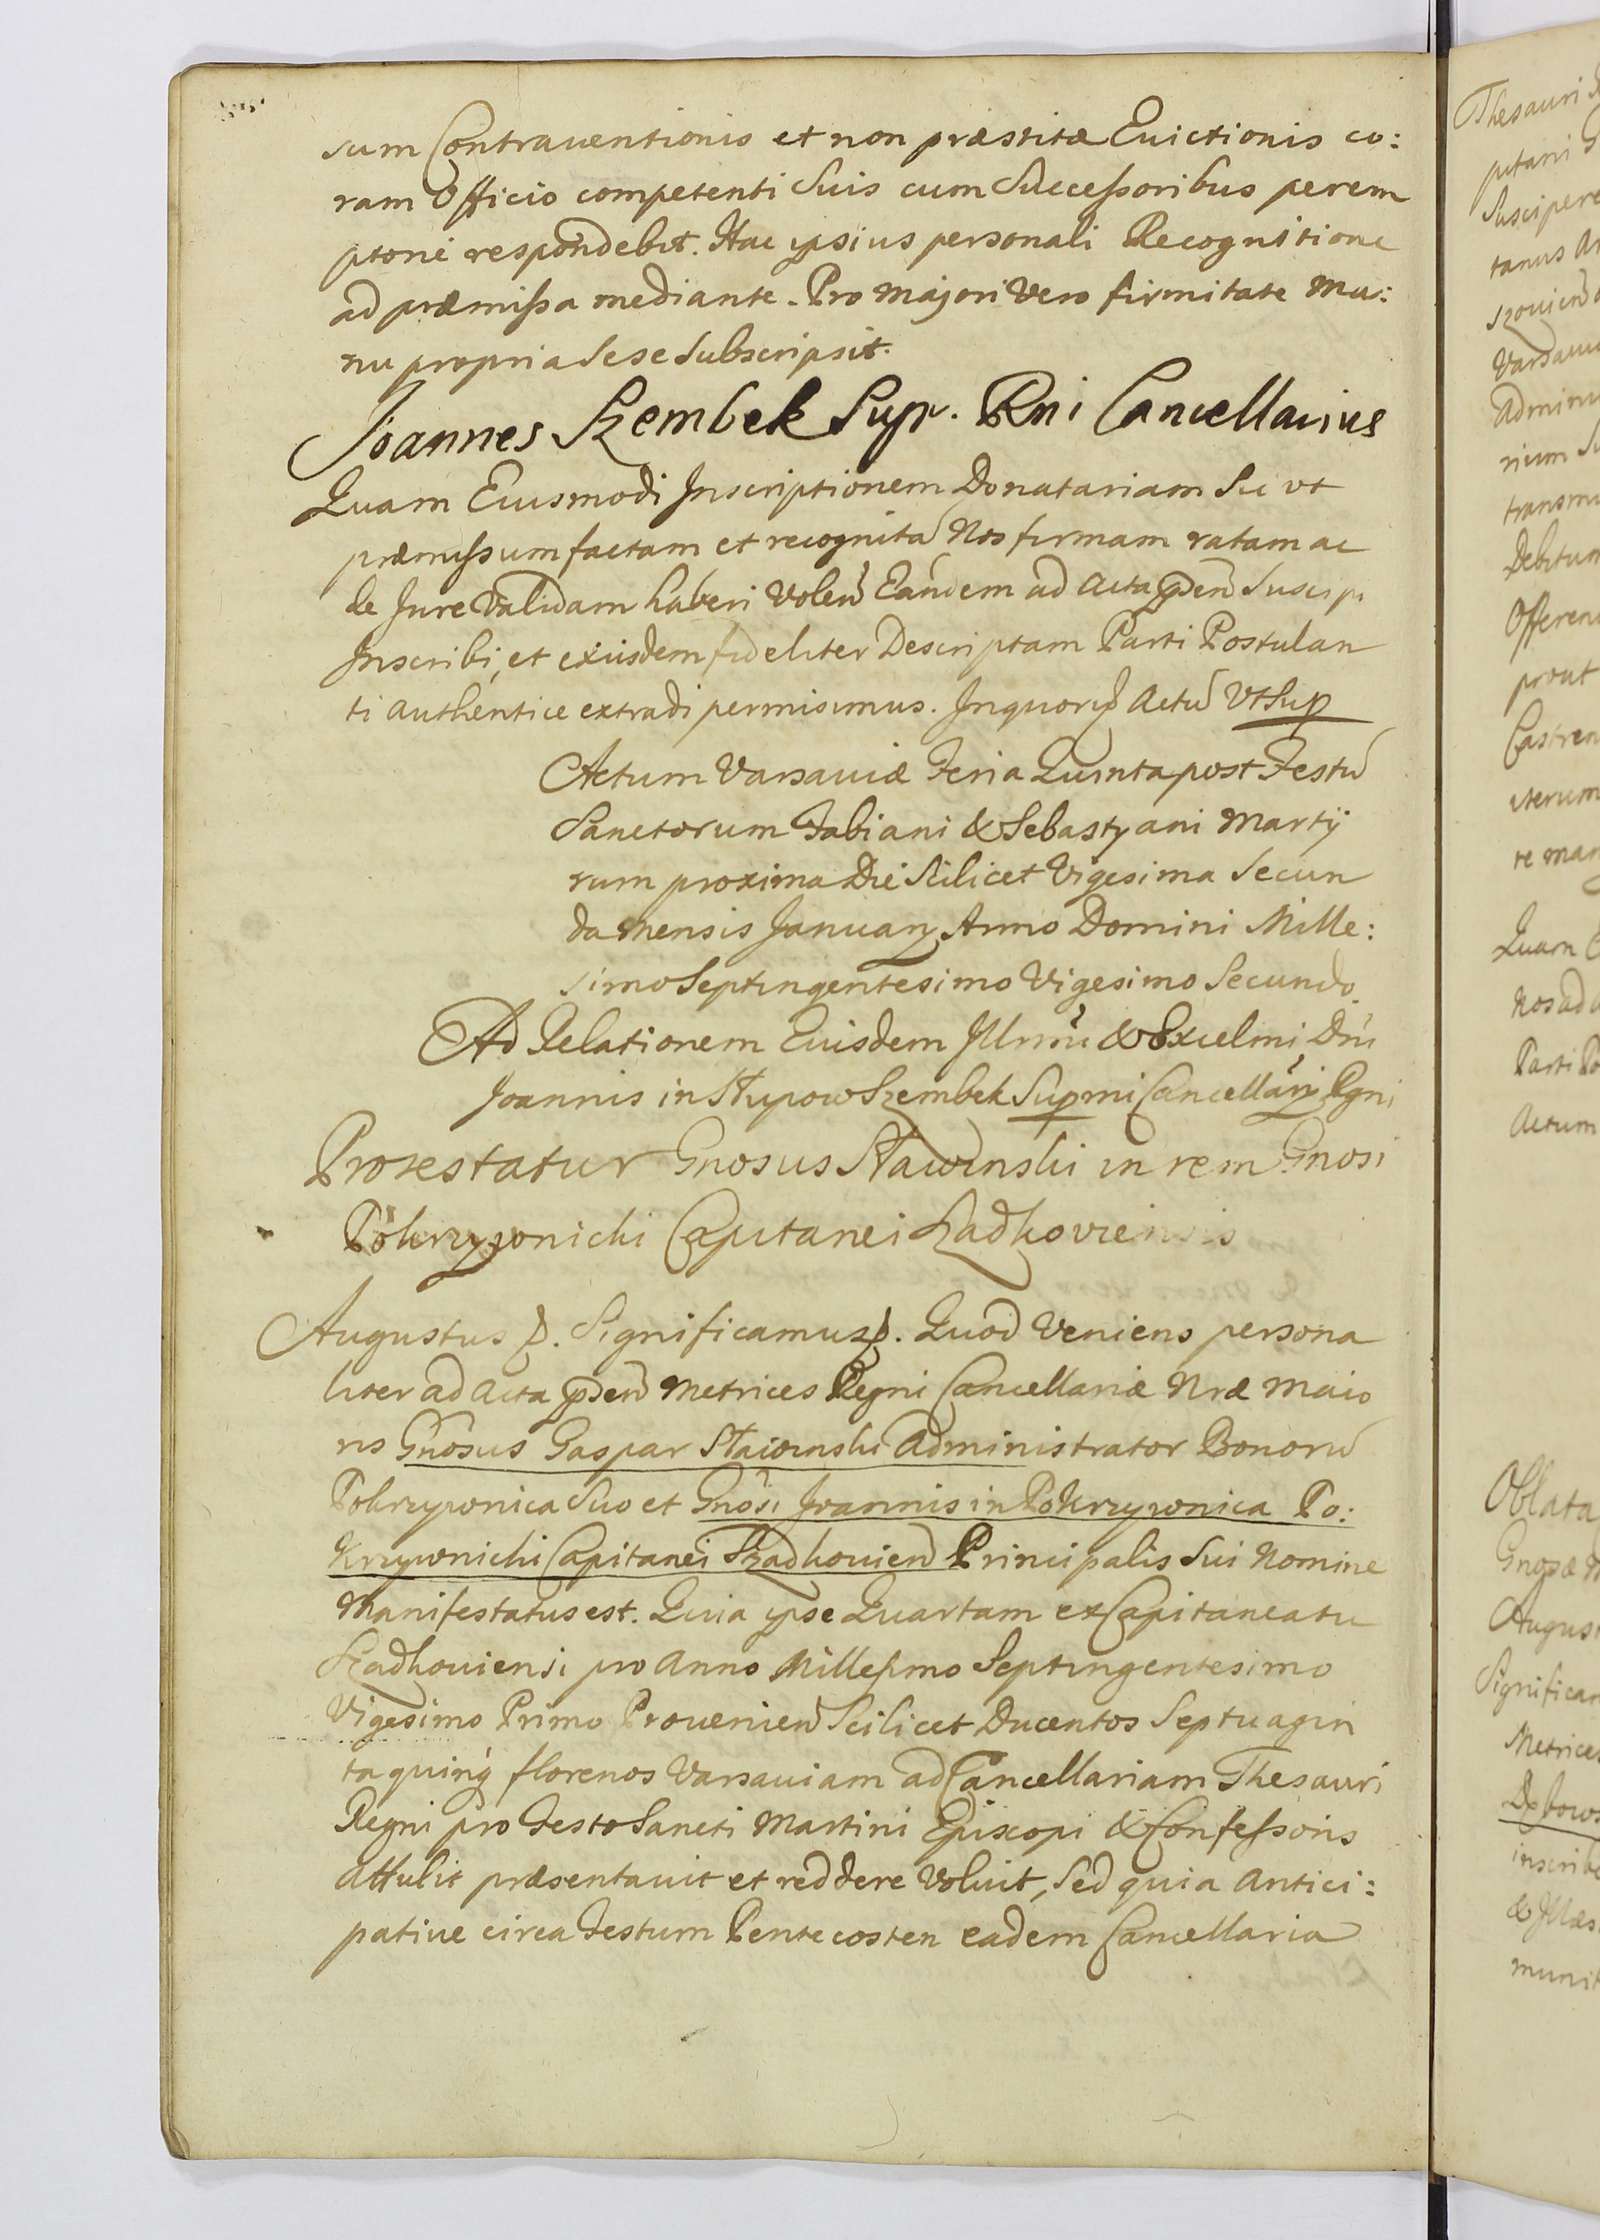 sum Contrauentionis et non præstitæ Euictionis co:
ram Officio competenti Suis cum Successoribus perem
ptorie respondebit. Hac ipsius personali Recognitione
ad præmissa mediante. Pro majori Vero firmitate Ma:
nu propria Sese Subscripsit.
Joannes Szembek Supr. Rni Cancellarius
Quam Eiusmodi Inscriptionem Donatariam Sic vt
præmissum factam et recognitã Nos firmam ratam ac
de Jure Validam haberi Volen̄ Eandem ad Acta p̄n̄ Suscipi
Inscribi, et exiisdem fideliter Descriptam Parti Postulan
ti authentice extradi permisimus. Inquorũ Actũ VtSup
Actum Varsauiæ Feria Quinta post Festũ
Sanctorum Fabiani & Sebastyani Martÿ
rum proxima Die Scilicet Vigesima Secun
da Mensis Januarÿ Anno Domini Mille:
simo Septingentesimo Vigesimo Secundo.
Ad Relationem Eiusdem Illrmi & Excelmi Dñi
Joannis in Słupow Szembek Supmi Cancellarÿ Rgni
Protestatur Gnosus Stawinski in rem Gnosi
Pokrzywnicki Capitanei Szadkoviensis
Augustus p. Significamus p. Quod Veniens persona
liter ad Acta p̄n̄ Metrices Regni Cancellariæ Nræ Maio
ris Gnosus Gaspar Stawinski Administrator Bonorũ
Pokrzywnica Suo et Gnosi Joannis in Pokrzywnica Po:
krzywnicki Capitanei Szadkovien̄ Principalis Sui Nomine
Manifestatus est. Quia ipse Quartam ex Capitaneatu
Szadkouiensi pro Anno Millesimo Septingentesimo
Vigesimo Primo Prouenien̄ Scilicet Ducentos Septuagin
ta quinq́ florenos Varsauiam ad Cancellariam Thesauri
Regni pro Festo Sancti Martini Episcopi & Confessoris
Attulit præsentauit et reddere Voluit, Sed quia Antici:
patiue circa Festum Pentecosten eadem Cancellaria
Thesauri
Suscipere
tanus
transm
Debitum
prout
Castren
iterum
re man
Quam
Nos ad
Actum
Oblata
Gnosæ
August
Significam
Metrices
inscribe
munit